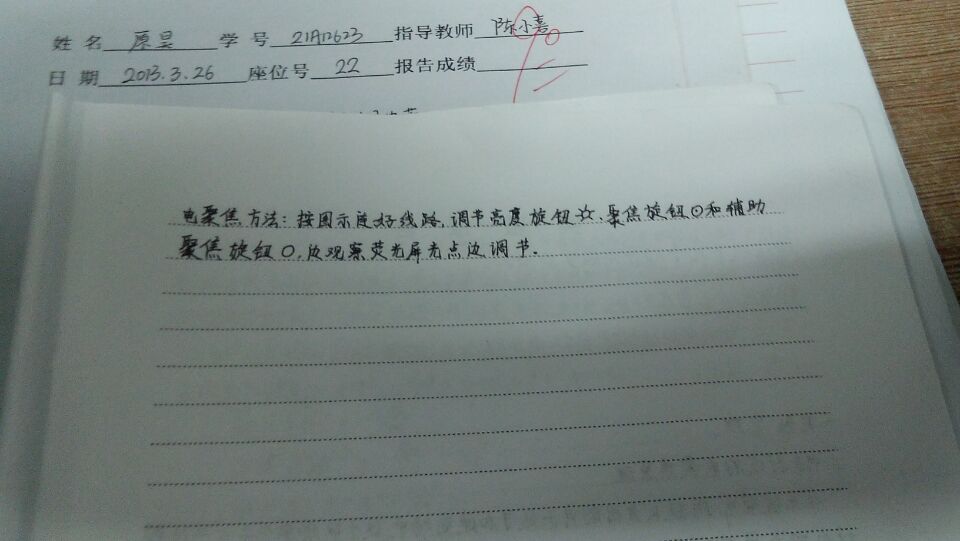 姓 名 原昊 学 号 21A12623 指导教师 陈小喜
日 期 2013.3.26 座位号 22 报告成绩
电聚焦方法:按图示连好线路,调节亮度旋钮☆、聚焦旋钮⊙和辅助
聚焦旋钮○,边观察荧光屏光点边调节。